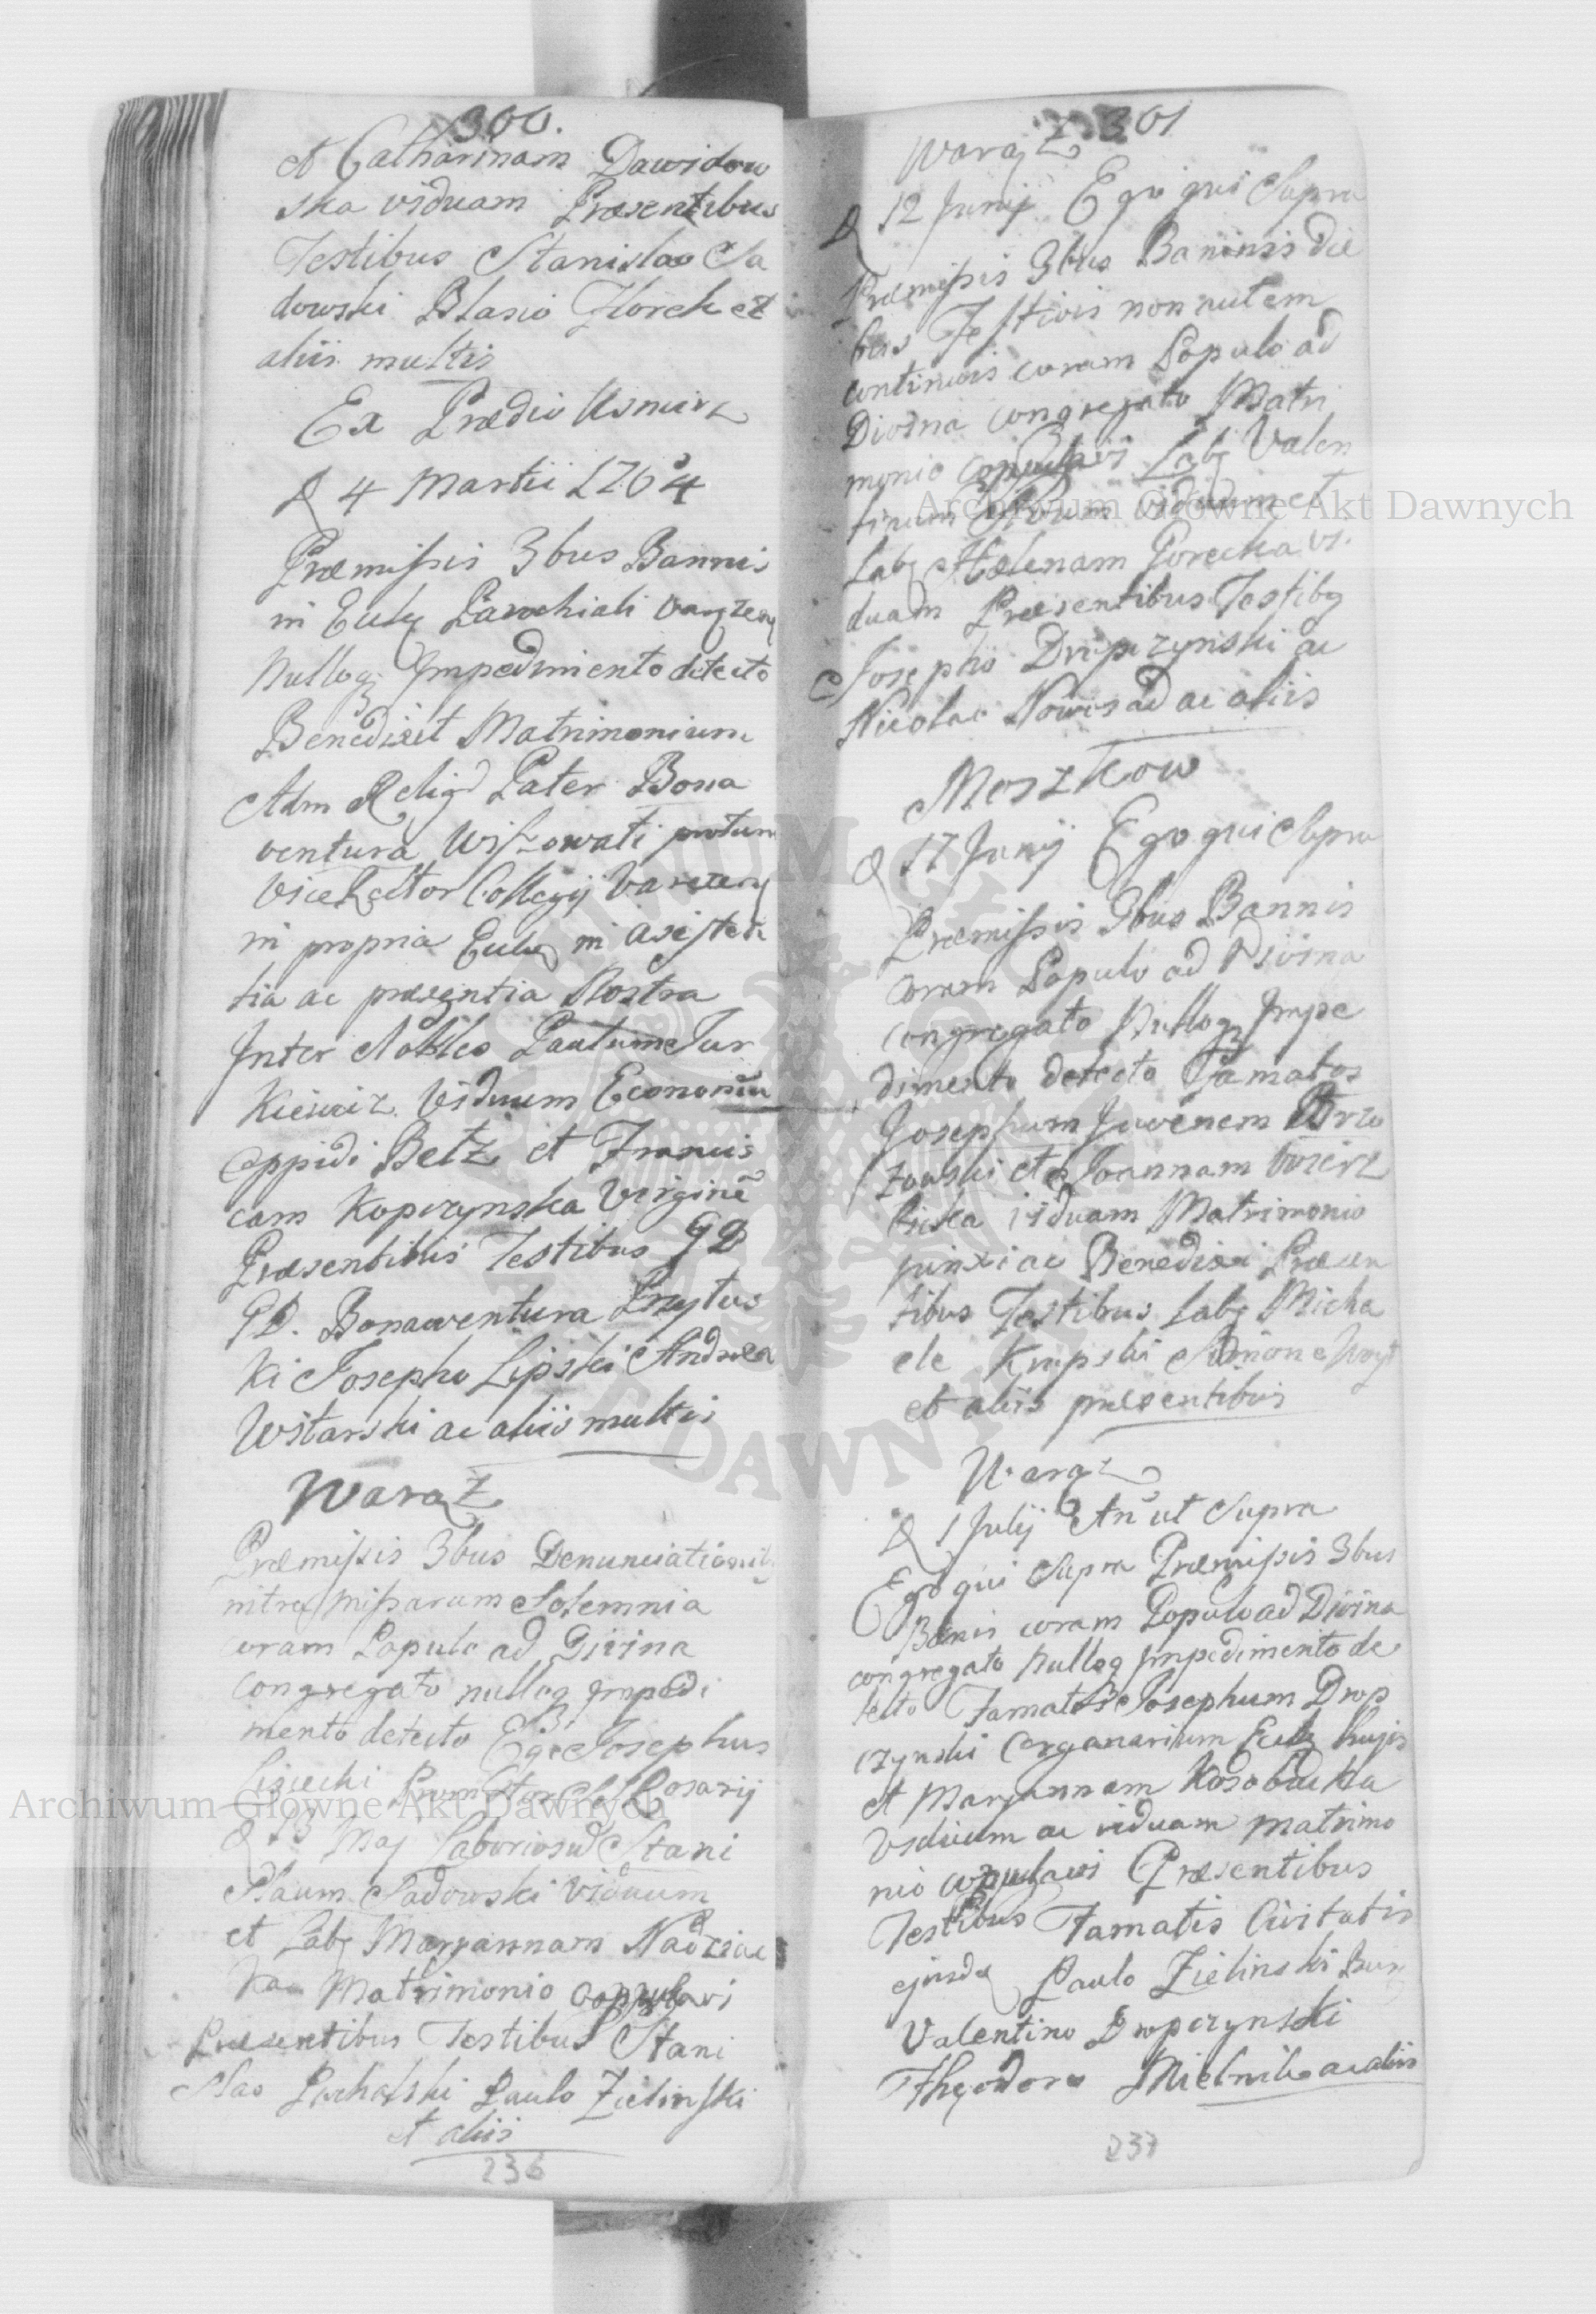 300.
et Catharinam Dawidow
ska viduam Præsentibus
Testibus Stanislao Sa
dowski Blasio Horek et
aliis multis
Ex Prædio Usmierz
D 4 Martii 1764
Præmissis 3bus Bannis
in Parochiali
Impedimento detecto
Benedixit Matrimonium
Adm Pater Bona
ventura
Vice Rector Collegij
in propria in
tia ac præsentia Nostra
Inter Nobiles Paulum Jur
kiewicz Viduum
Oppidi Betz et Francis
cam Kopczynska Virginē
Præsentibus Testibus GD
GD. Bonaventura
ki Josepho Lipski Andrea
Witarski ac aliis multis
Waręz
Præmissis 3bus
intra Missarum Solemnia
coram Populo ad Divina
congregato nulloq Impedi
mento detecto Ego Josephus
Lisiecki Promotor SS Rosarij
D 13 Maj Stani
slaum Sadowski Viduum
et Lab Maryannam
Matrimonio copulavi
Præsentibus Testibus Stani
slao Paulo Zielinski
et aliis
236
301
Waręz
D 12 Junij Ego qui Supra
Præmissis 3bus Baninis Die
bus Festivis non autem
continuis coram Populo ad
Divina congregato Matri
monio copulavi Lab Valen
tinum viduum et
Lab Helenam Gorecka vi
duam Præsentibus Testibq
Josepho Dropczynski ac
Nicolao Nowosad ac aliis
Moszkow
D 17 Junij Ego qui Supra
Præmissis 3bus Bannis
coram Populo ad Divina
congregato Nulloq Impe
dimento detecto Famatos
Josephum Juvenem Brzo
zowski et Joannam
viduam Matrimonio
junxi ac Benedixi Præsen
tibus Testibus Lab Micha
ele Krupski Simone
et aliis præsentibus
Waręz
D 1 Julij An ut Supra
Ego qui Supra Præmissis 3bus
Banis coram Populo ad Divina
congregato Nulloq Impedimento de
tecto Famatos Josephum Drop
czynski Organarium hujus
et Maryannam Kosobudzka
Viduum ac viduam matrimo
nio copulavi Præsentibus
Testibus Famatis Civitatis
ejusd Paulo Zielinski
Valentino Dropczynski
Theodoro Mielnik ac aliis
237
Archiwum Główne Akt Dawnych
Archiwum Główne Akt Dawnych